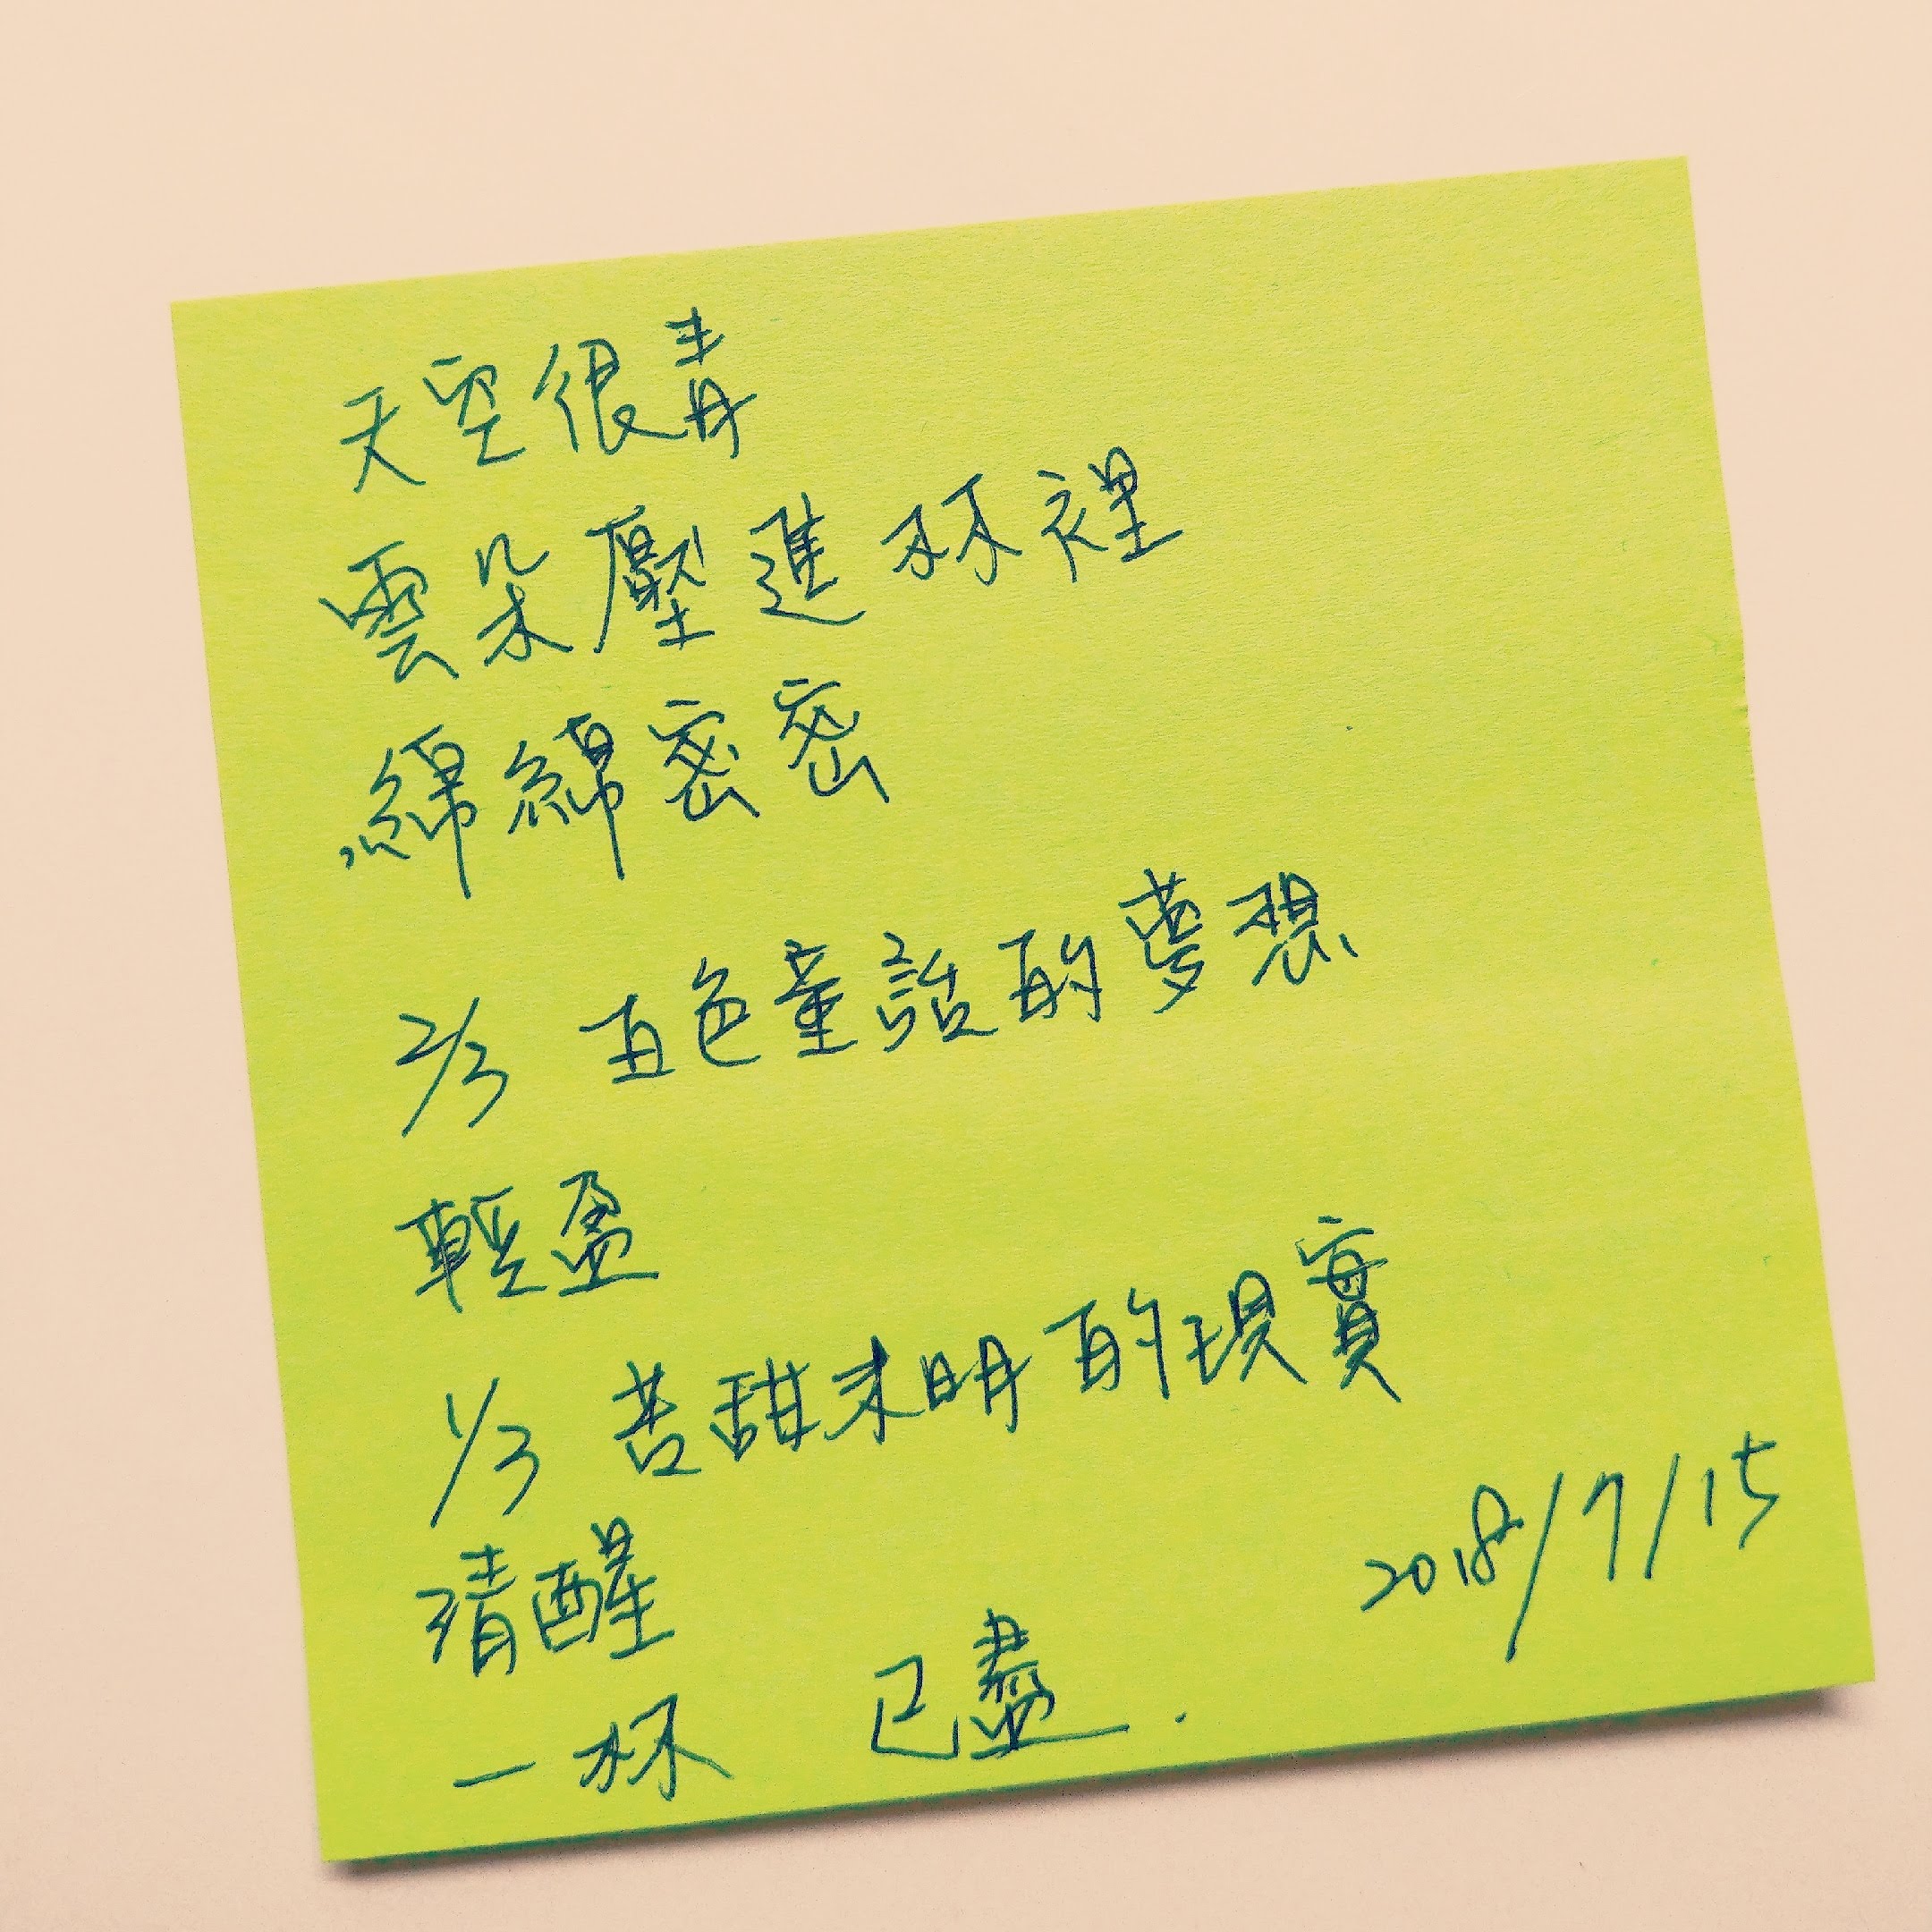 天空很青
雲朵壓進杯裡
綿綿密密
2/3 五色童話的夢想
輕盈
1/3 苦甜未明的現實
清醒
一杯 已盡.
2018/7/15